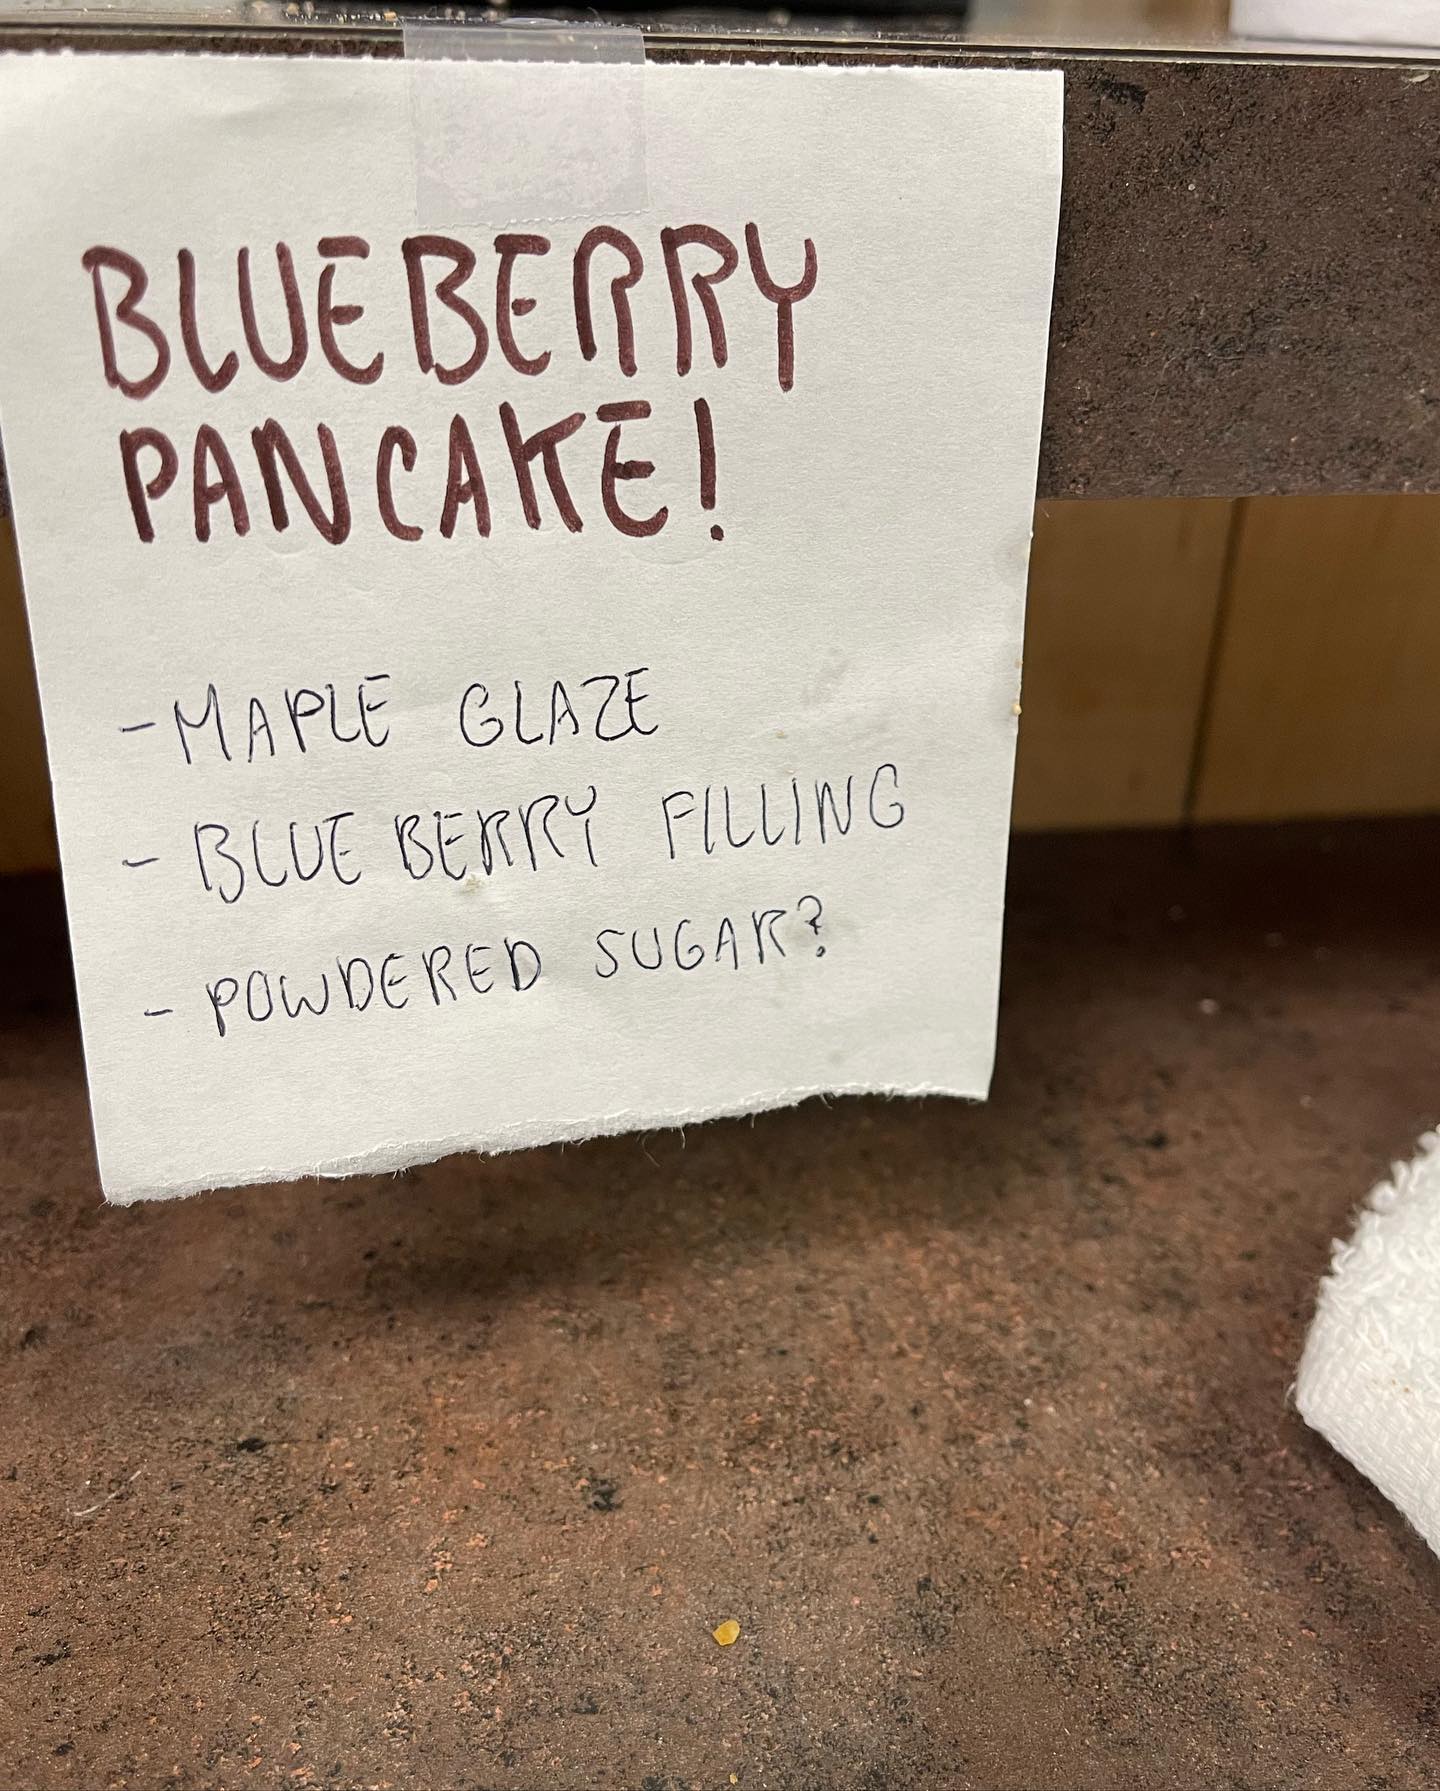 BLUEBERRY
PANCAKE!
- MAPLE GLAZE
- BLUEBERRY FILLING
- POWDERED SUGAR?